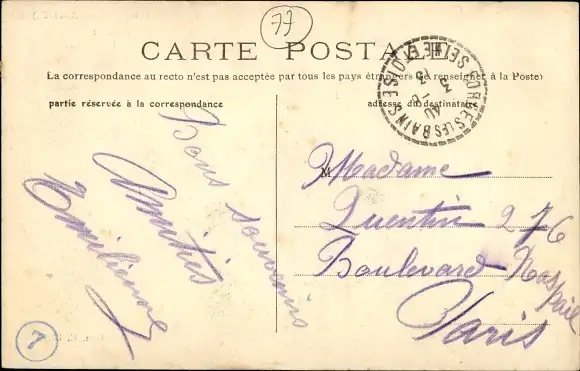 77
CARTE POSTALE
(La correspondance au recto n'est pas acceptée par tous les pays étrangers Se renseigner à la Poste)
partie réservée à la correspondance
adresse du destinataire
FORGES LES BAINS SEINE ET OISE
Bons souvenirs
Amitiés
Emilienne
M
Madame
Quentin 276
Boulevard Raspail
Paris
7